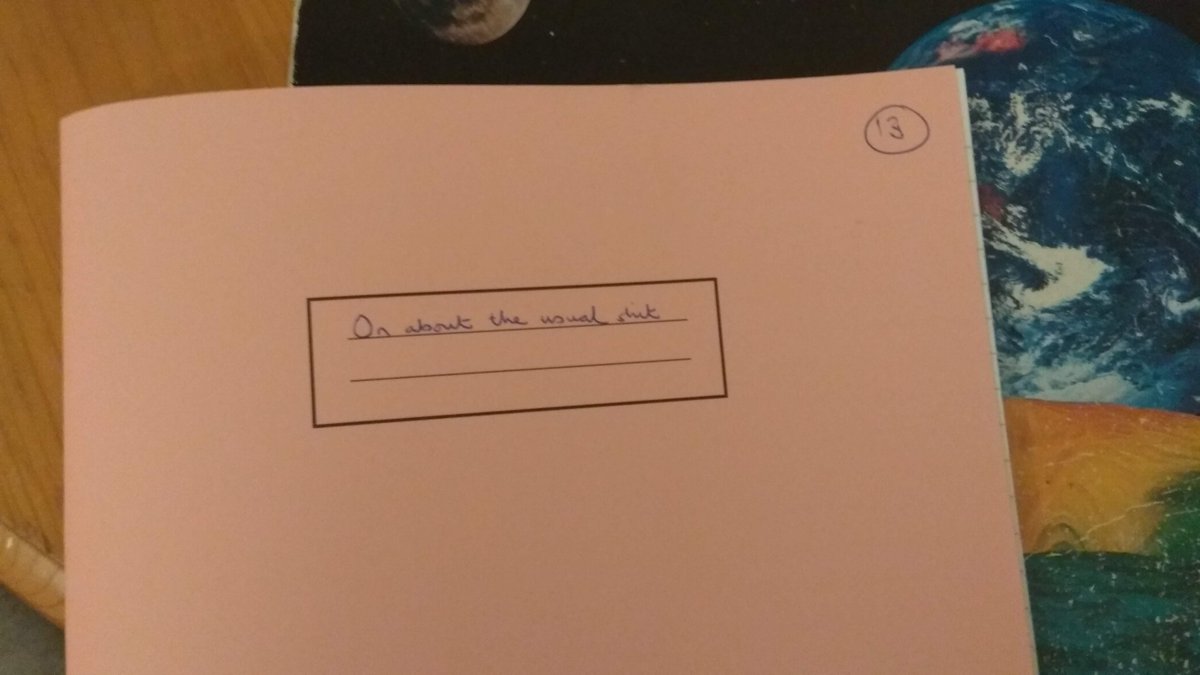 13
On about the usual shit